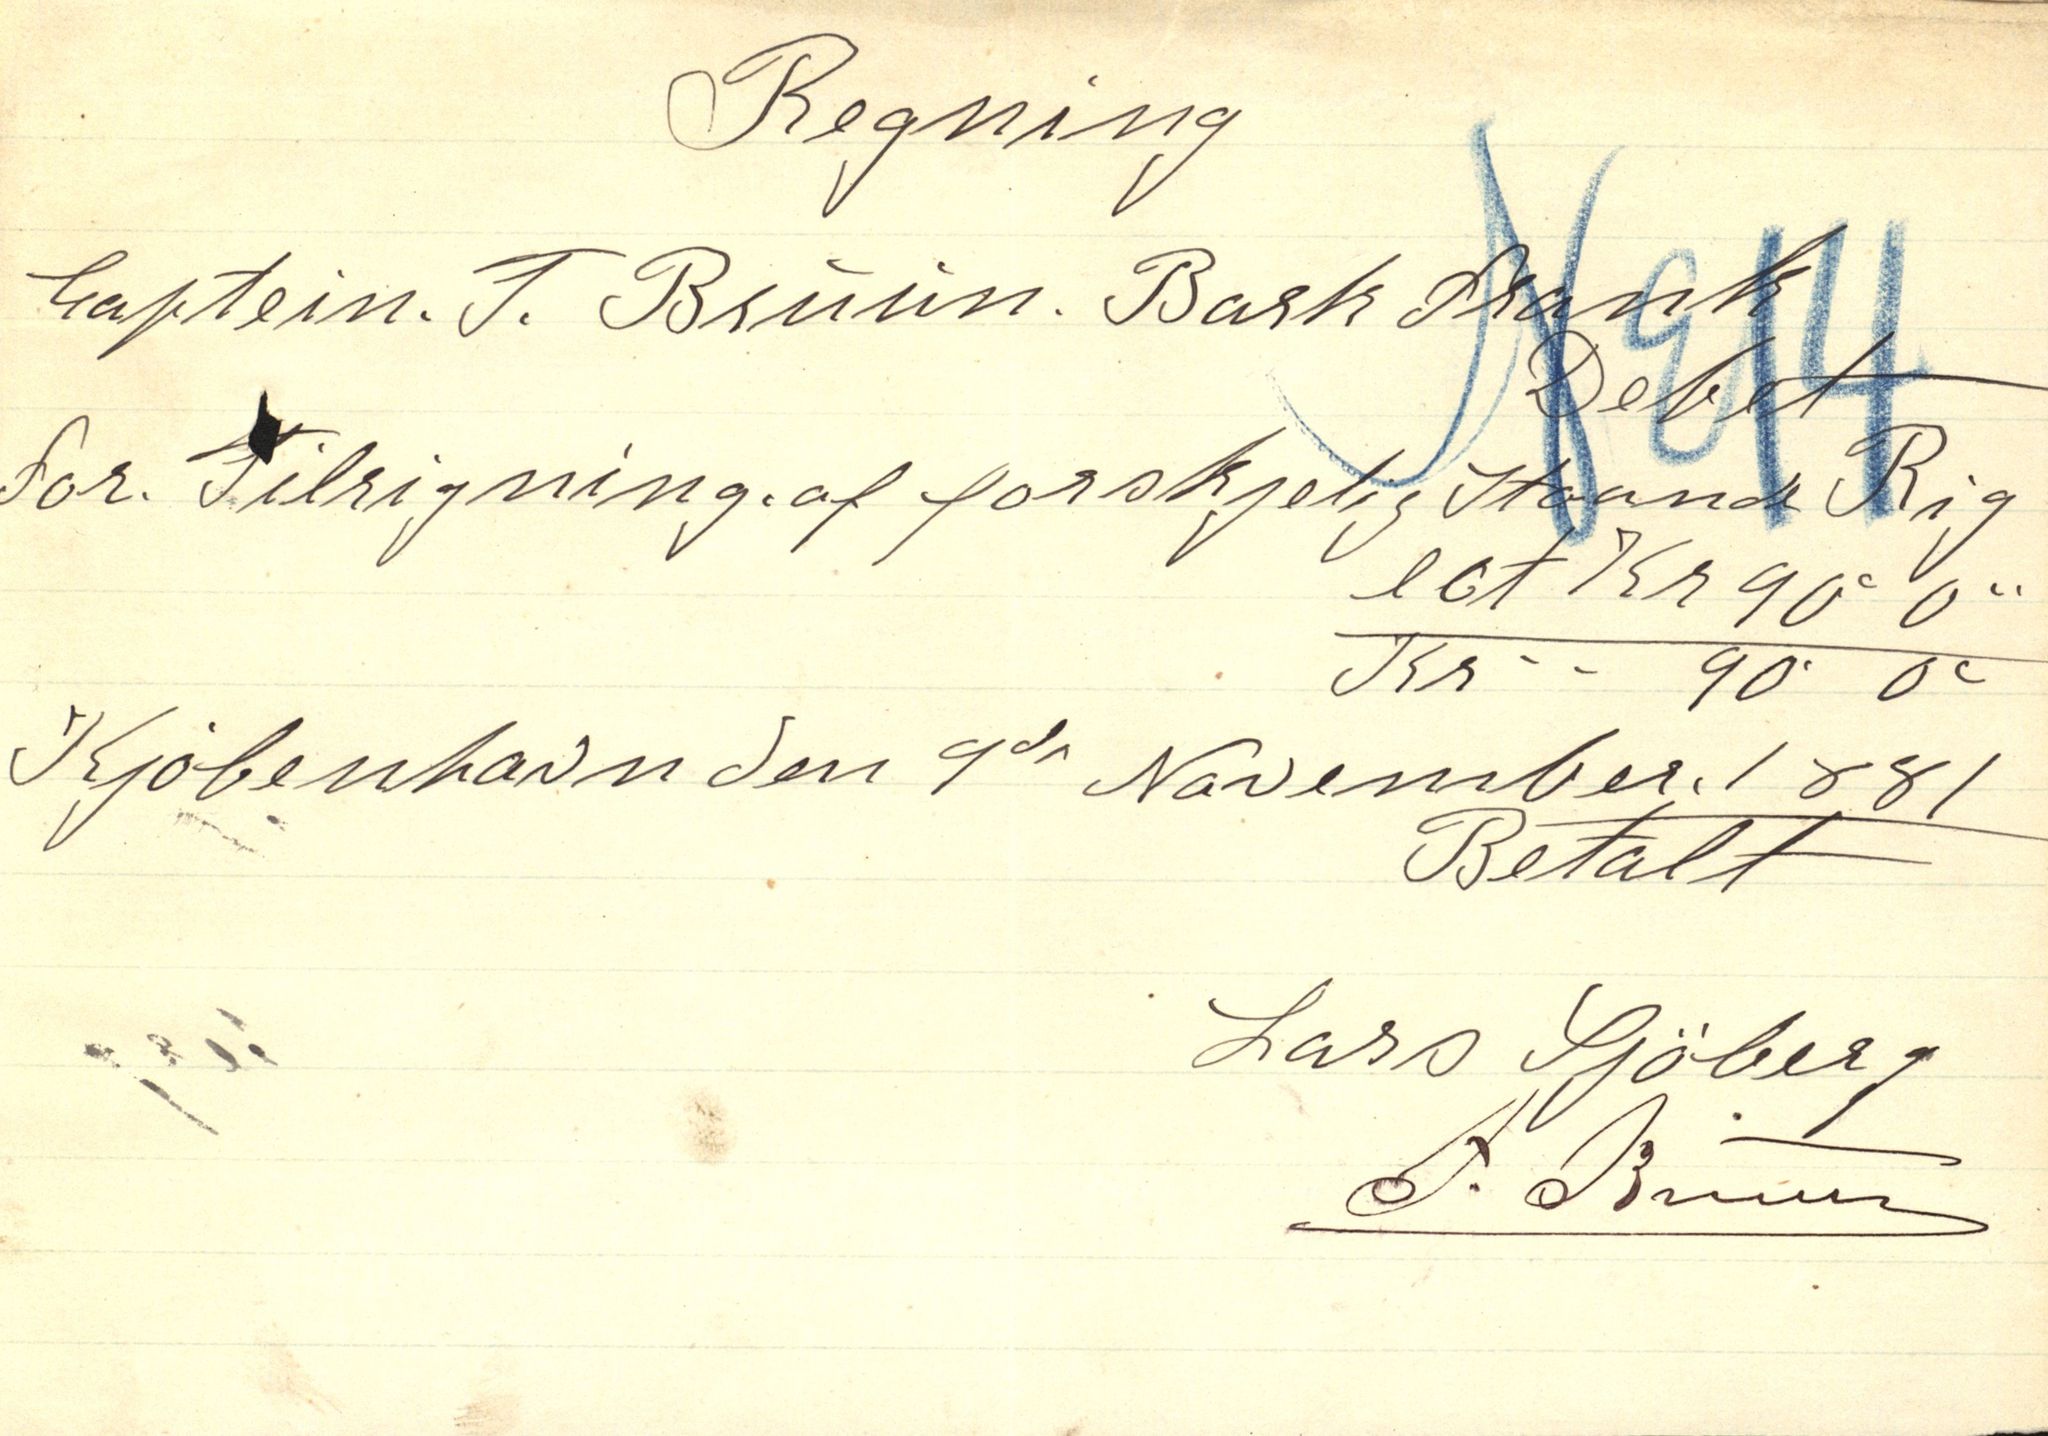 Regning
Captein. T. Brüün. Bark Frank
No 14
Debet
For. Tilrigning. af forskjelig Staande Rig
ect Kr 90 0"
Kr -- 90 0
Kjöbenhavn den 9de November. 1881
Betalt
Lars Sjöberg
T. Bruun